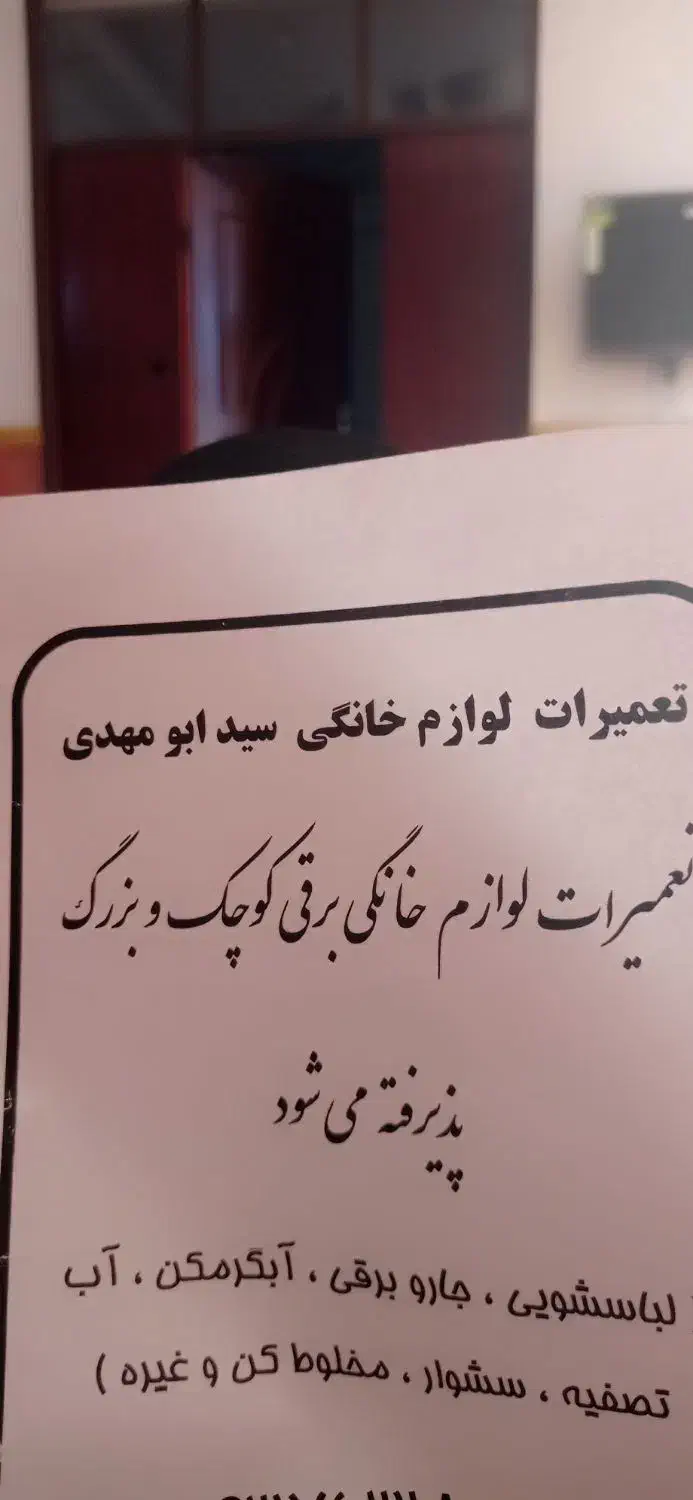 تعمیرات لوازم خانگی سید ابو مهدی
تعمیرات لوازم خانگی برقی کوچک و بزرگ
پذیرفته می شود
لباسشویی ، جارو برقی ، آبگرمکن ، آب
تصفیه ، سشوار ، مخلوط کن و غیره )